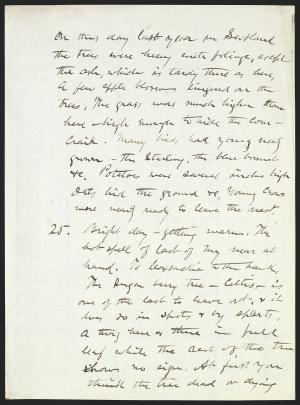 On this day last year in Scotland
the trees were heavy with foliage, except
the ash, which is tardy there as here,
A few apple blossoms lingered on the
trees, The grass was much higher than
here - high enough to hide the Corn-
Craik. Many birds had young nearly
grown - the Starling, the blue
&c. Potatoes were several inches high
Oats, hid the ground &c, Young Crows
were nearly ready to leave the nest.
25. Bright day - getting warm. The
hot spell of last of May near at
hand. To with bark,
The tree - Celtis - is
one of the last to leave out, & it
does so in spots & by spurts,
A twig here & there in full
leaf while the rest of the tree
shows no sign. At first you
think the tree dead or dying